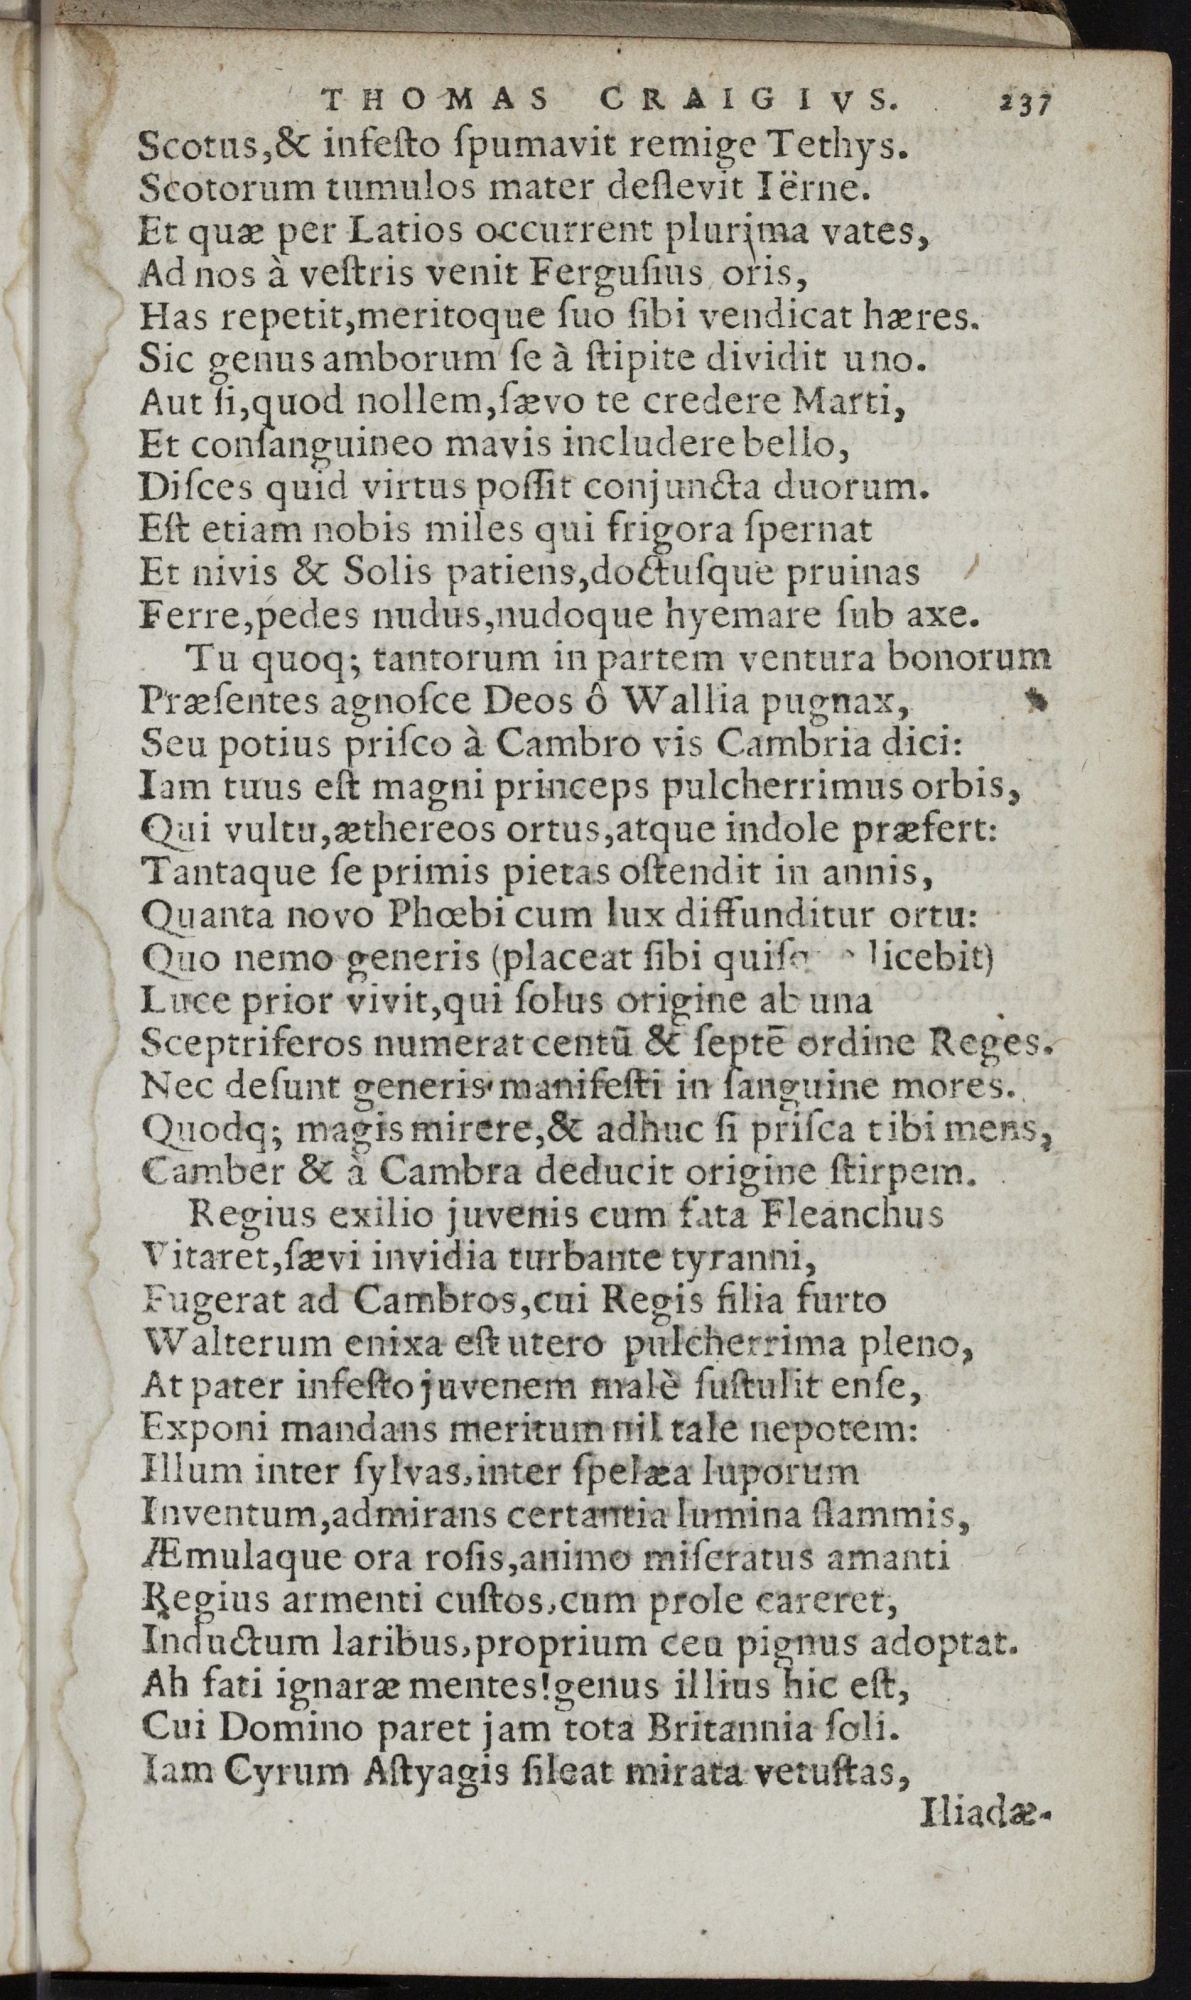 THOMAS CRAIGIVS. 237
Scotus,& infeſto ſpumavit remige Tethys.
Scotorum tumulos mater deflevit Iërne.
Et quæ per Latios occurrent plurima vates,
Ad nos à veſtris venit Ferguſius oris,
Has repetit,meritoque ſuo ſibi vendicat hæres.
Sic genus amborum ſe à ſtipite dividit uno.
Aut ſi,quod nollem,ſævo te credere Marti,
Et conſanguineo mavis includere bello,
Diſces quid virtus poſſit conjuncta duorum.
Eſt etiam nobis miles qui frigora ſpernat
Et nivis & Solis patiens,doctuſque pruinas
Ferre,pedes nudus,nudoque hyemare ſub axe.
Tu quoq; tantorum in partem ventura bonorum
Præſentes agnoſce Deos ô Wallia pugnax,
Seu potius priſco à Cambro vis Cambria dici:
Iam tuus eſt magni princeps pulcherrimus orbis,
Qui vultu,æthereos ortus,atque indole præfert:
Tantaque ſe primis pietas oſtendit in annis,
Quanta novo Phœbi cum lux diffunditur ortu:
Quo nemo generis (placeat ſibi licebit)
Luce prior vivit,qui ſolus origine ab una
Sceptriferos numerat centū & ſeptē ordine Reges.
Nec deſunt generis manifeſti in ſanguine mores.
Quodq; magis mirere,& adhuc ſi priſca tibi mens,
Camber & à Cambra deducit origine ſtirpem.
Regius exilio juvenis cum fata Fleanchus
Vitaret,ſævi invidia turbante tyranni,
Fugerat ad Cambros,cui Regis filia furto
Walterum enixa eſt utero pulcherrima pleno,
At pater infeſto juvenem malè ſuſtulit enſe,
Exponi mandans meritum nil tale nepotem:
Illum inter ſylvas,inter ſpelæa luporum
Inventum,admirans certantia lumina flammis,
Æmulaque ora roſis,animo miſeratus amanti
Regius armenti cuſtos,cum prole careret,
Inductum laribus,proprium ceu pignus adoptat.
Ah fati ignaræ mentes!genus illius hic eſt,
Cui Domino paret jam tota Britannia ſoli.
Iam Cyrum Aſtyagis ſileat mirata vetuſtas,
Iliadæ-